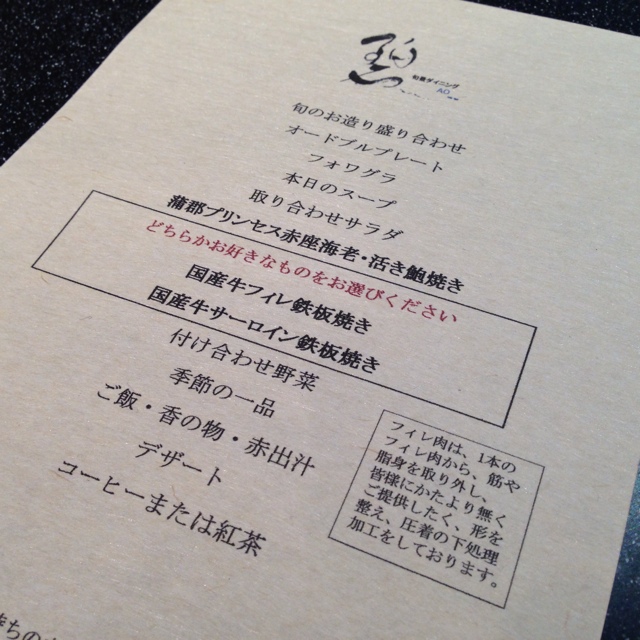 碧
旬菜ダイニング
AO
旬のお造り盛り合わせ
オードブルプレート
フォワグラ
本日のスープ
取り合わせサラダ
蒲郡プリンセス赤座海老・活き鮑焼き
どちらかお好きなものをお選びください
国産牛フィレ鉄板焼き
国産牛サーロイン鉄板焼き
付け合わせ野菜
季節の一品
ご飯・香の物・赤出汁
デザート
コーヒーまたは紅茶
フィレ肉は、1本の
フィレ肉から、筋や
脂身を取り外し、
皆様にかたより無く
ご提供したく、形を
整え、圧着の下処理
加工をしております。